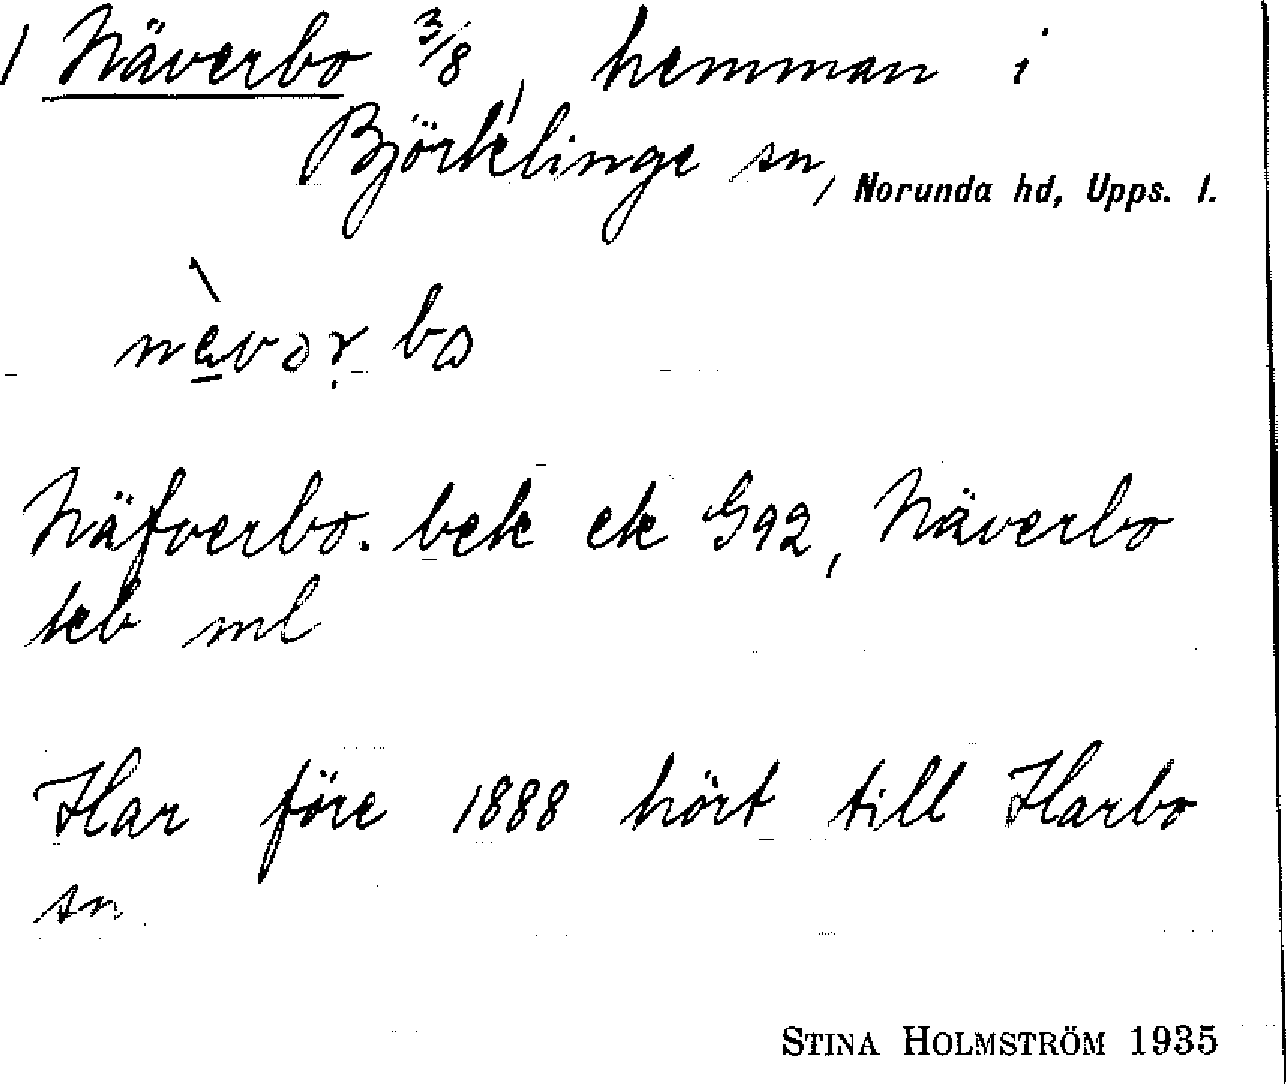 / Näverbo 3/8, hemman i
Björklinge sn, Norunda hd, Upps. l.
nèvərbo
Näfverbo. bek ek G92, Näverbo
keb ml
Har före 1888 hört till Harbo
sn.
STINA HOLMSTRÖM 1935